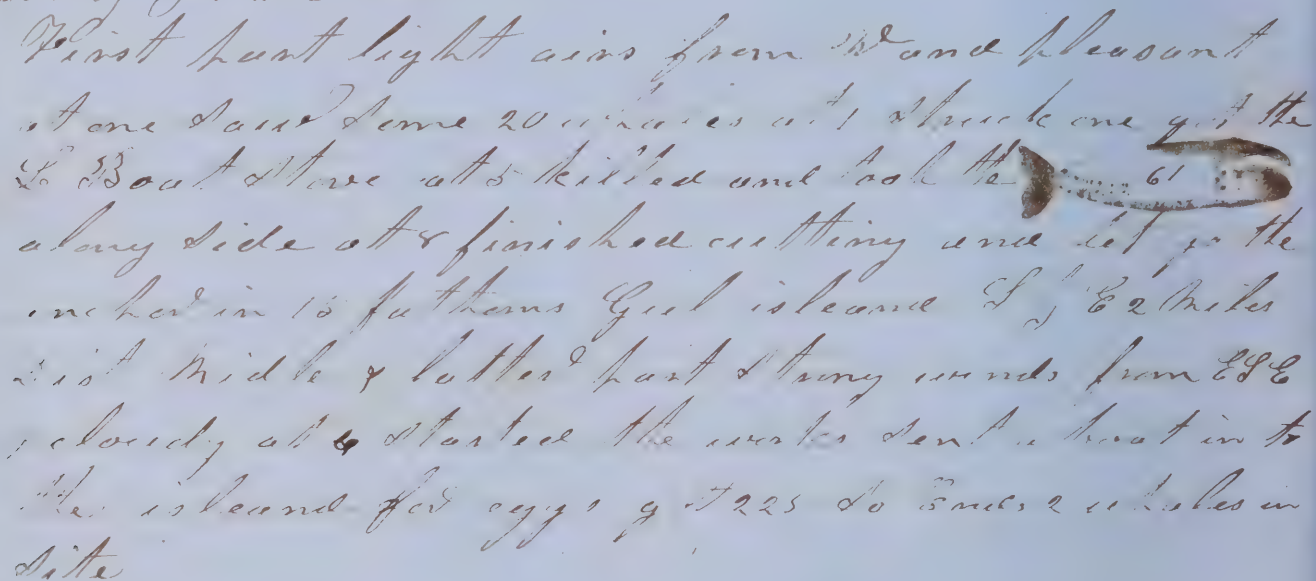 First part light airs from Wd and pleasant
at one saw some 20 whales at 1 struck one got the
L Boat stove at 5 killed and took the 61
along side at 8 finished cutting and let go the
anchor in 15 fathoms Gul isleand S E 2 Miles
Dist Midle & latter part strong winds from ESE
cloudy at 6 started the works sent a boat in to
the isleand for eggs got 225 So Ends 2 whales in
site